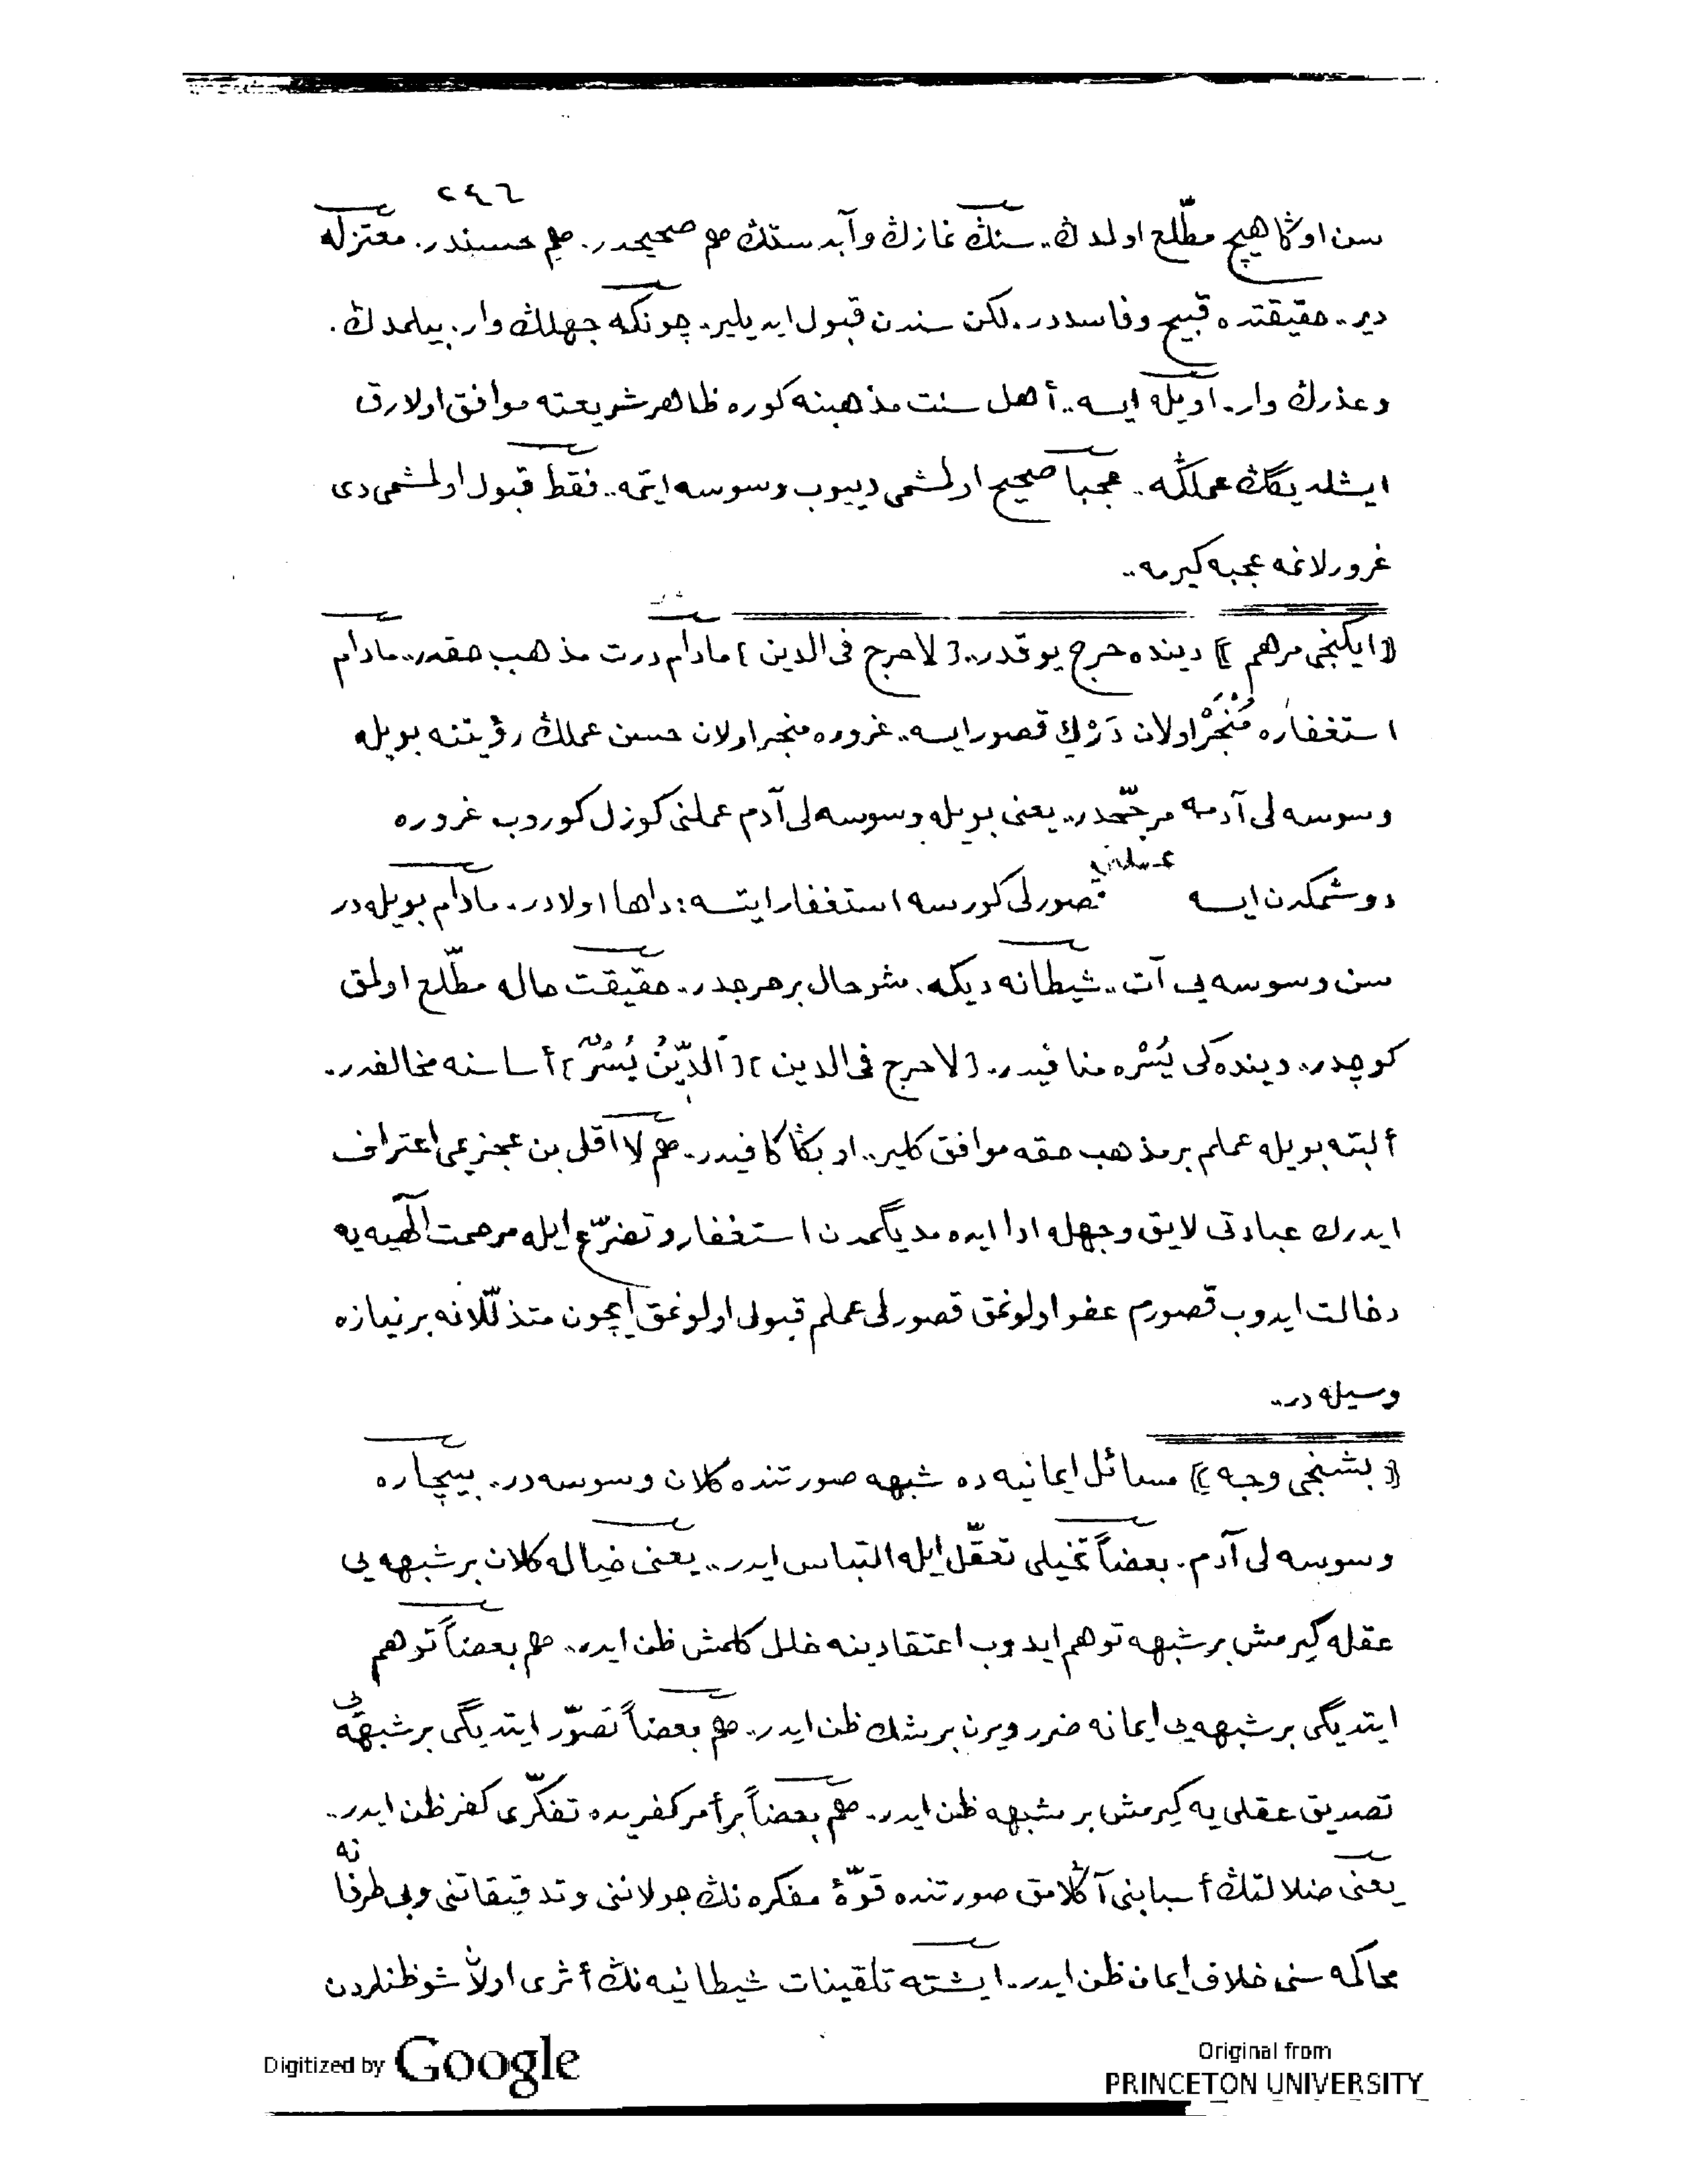 ٢٤٦
سن اوڭا هيچ مطّلع اولمدڭ.. سنڭ نمازڭ وآبدستڭ هم صحيحدر. هم حسندر. معتزله
دير.. حقيقتده قبيح وفاسددر. لكن سندن قبول ايديلير. چونكه جهلڭ وار. بيلمدڭ.
وعذرڭ وار. اويله ايسه.. أهل سنت مذهبنه كوره ظاهر شريعته موافق اولارق
ايشلديگڭ عملڭه.. عجبا صحيح اولمشمى دييوب وسوسه ايتمه.. فقط قبول اولمشمى دى
غرورلانمه عجبه كيرمه..
﴿ايكنجى مرهم﴾ دينده حرج يوقدر.. [لا حرج فى الدين] مادام درت مذهب حقدر.. مادام
استغفاره مُنْجَرْ اولان دَرْكِ قصور ايسه.. غروره منجر اولان حسن عملڭ رؤيتنه بويله
وسوسه لى آدمه مرجّحدر.. يعنى بويله وسوسه لى آدم عملنى كوزل كوروب غروره
دوشمكدن ايسه عملنى قصورلى كورسه استغفار ايتسه: داها اولادر. مادام بويله در
سن وسوسه يى آت.. شيطانه ديكه. شو حال بر حرجدر.. حقيقت حاله مطّلع اولمق
كوچدر.. دينده كى يُسْره منافيدر. [لا حرج فى الدين] [اَلدِّينُ يُسْرٌ] أساسنه مخالفدر.
ألبته بويله عملم بر مذهب حقه موافق كلير.. او بڭا كافيدر. هم لا اقل بن عجزيمى اعتراف
ايدرك عبادتى لايق وجهله ادا ايده مديگمدن استغفار و تضرّع ايله مرحمت الٓهيه يه
دخالت ايدوب قصورم عفو اولونمق قصورلى عملم قبول اولونمق ايچون متذلّلانه بر نيازه
وسيله در..
﴿بشنجى وجه﴾ مسائل ايمانيه ده شبهه صورتنده كلان وسوسه در. بيچاره
وسوسه لى آدم. بعضاً تخيلى تعقّل ايله التباس ايدر.. يعنى خياله كلان بر شبهه يى
عقله كيرمش بر شبهه توهم ايدوب اعتقادينه خلل كلمش ظن ايدر.. هم بعضاً توهم
ايتديگى بر شبهه يى ايمانه ضرر ويرن بر شك ظن ايدر.. هم بعضاً تصوّر ايتديگى بر شبهه يى
تصديق عقلى يه كيرمش بر شبهه ظن ايدر. هم بعضاً بر أمر كفريده تفكّرى كفر ظن ايدر..
يعنى ضلالتڭ أسبابنى آڭلامق صورتنده قوّۀ مفكره نڭ جولاننى و تدقيقاتنى وبى طرفانه
محاكمه سنى خلاف ايمان ظن ايدر. ايشته تلقينات شيطانيه نڭ أثرى اولان شو ظنلردن
Digitized by Google
Original from
PRINCETON UNIVERSITY